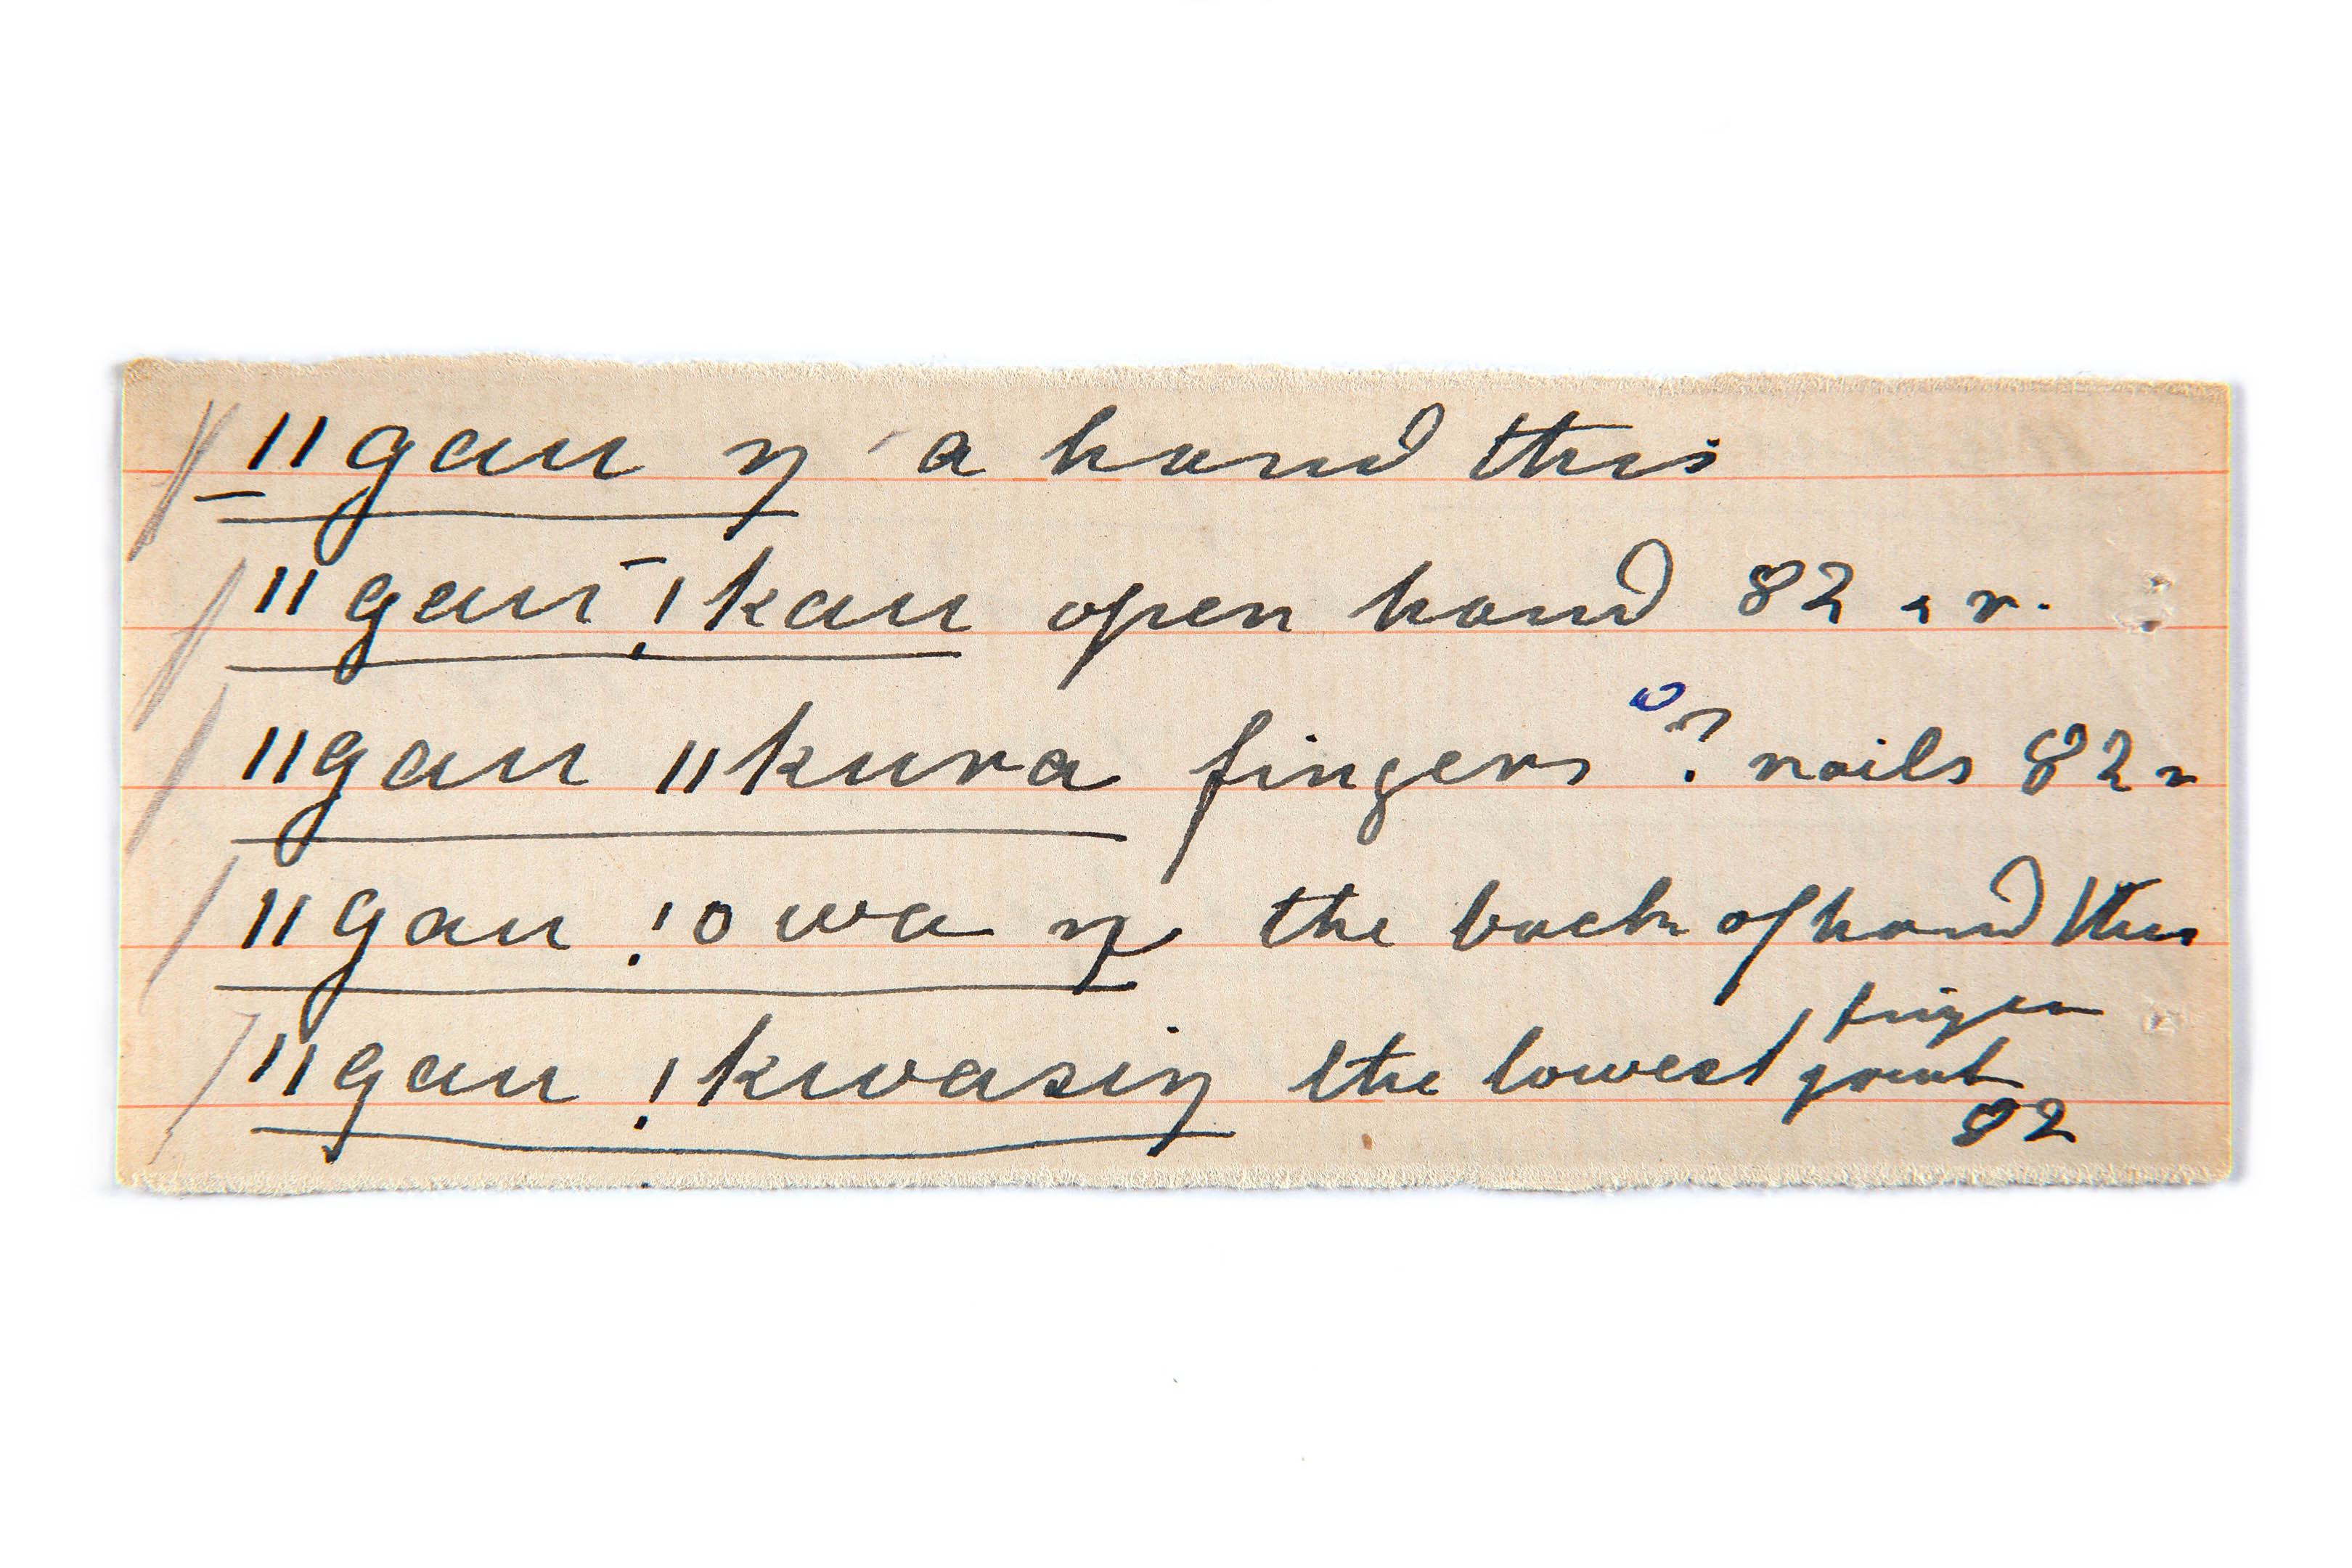 ǁgau ŋ a hand this
ǁgau ǃkau open hand 82 r.
ǁgau ǁkura fingers ? nails 82 r
ǁgau ǃowa ŋ the back of hand this
ǁgau ǃkwasiŋ the lowest finger joint
82